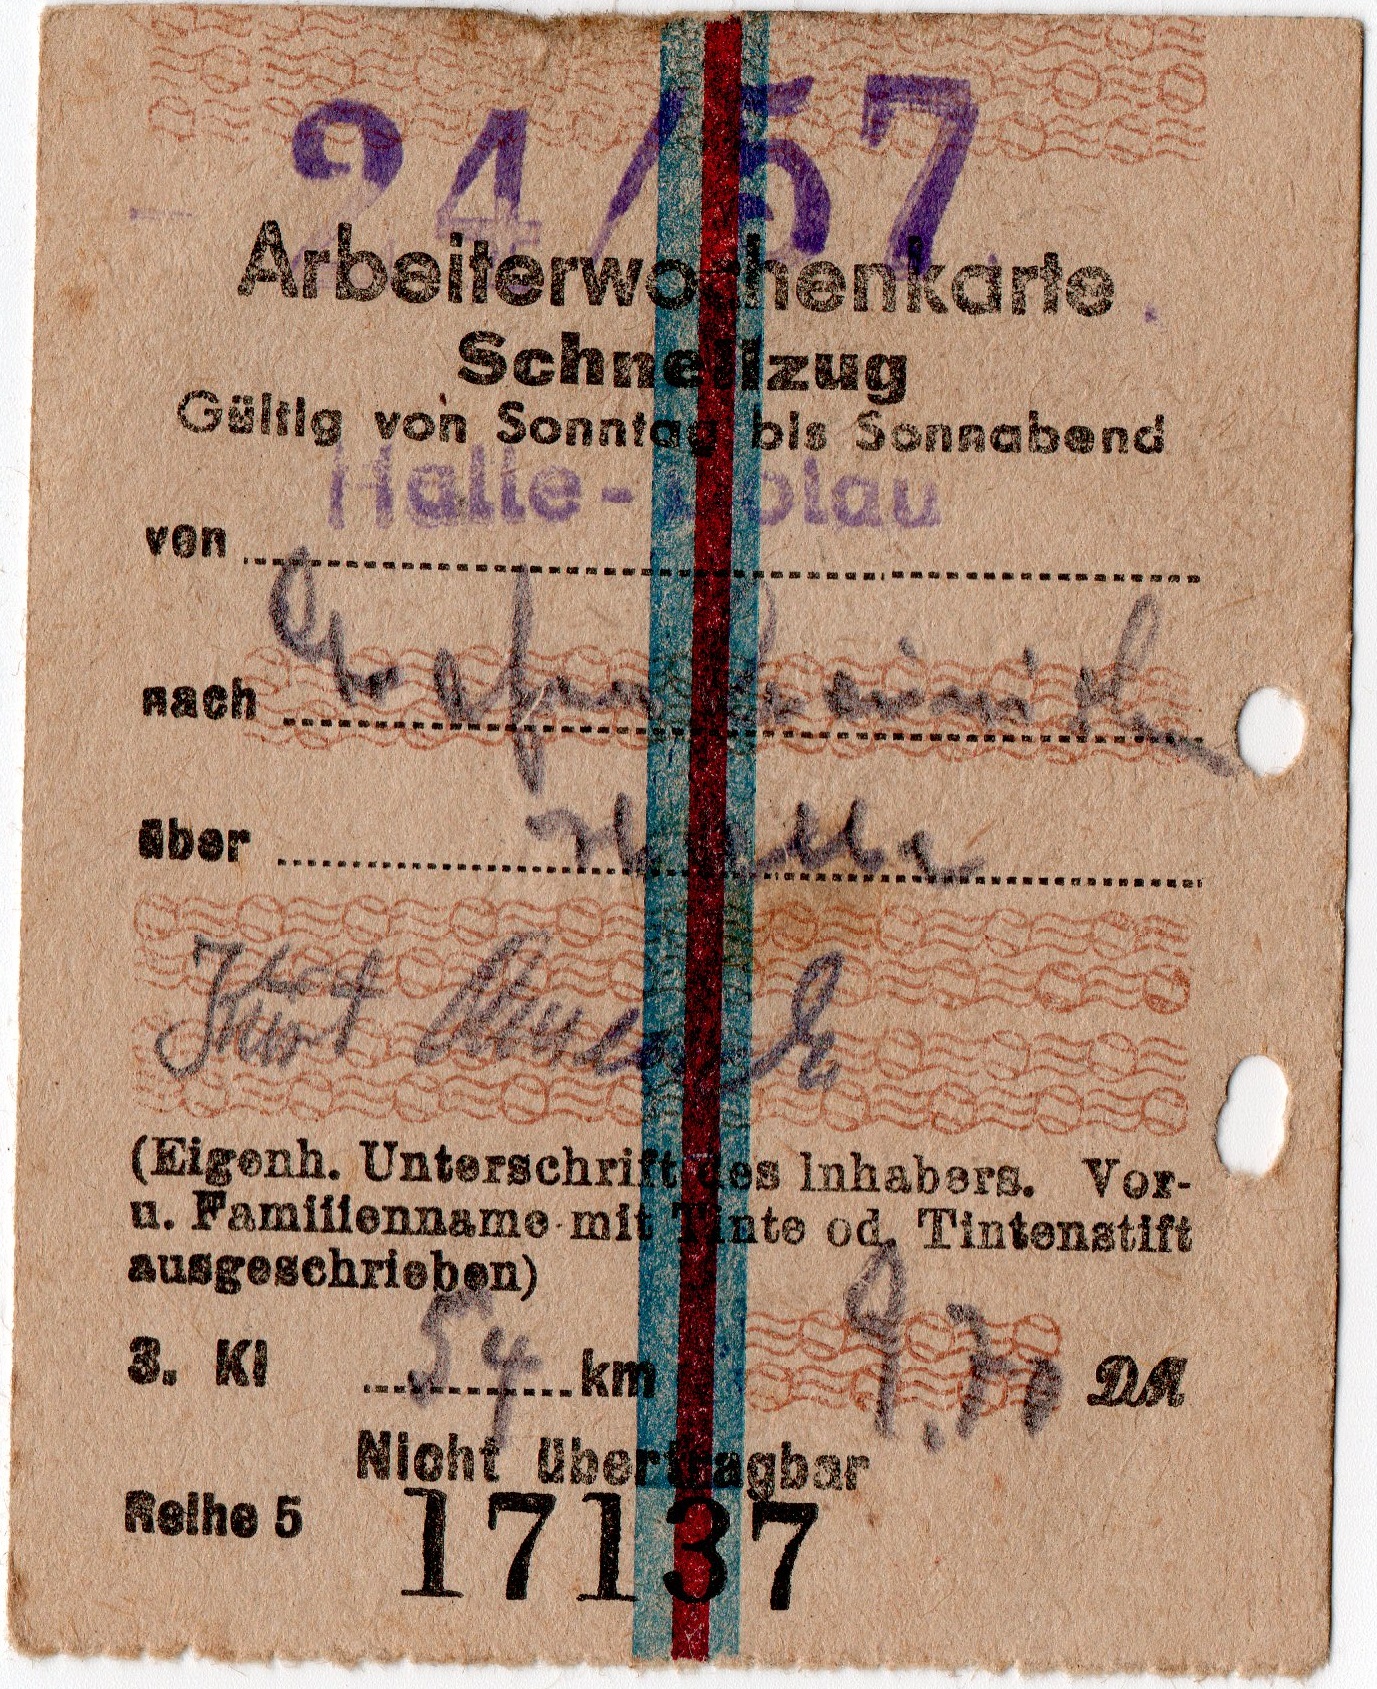 24/57
Arbeiterwochenkarte
Schnellzug
Gültig von Sonntag bis Sonnabend
Halle-Dölau
von
nach Gräfenhainichen
über Halle
Kurt
(Eigenh. Unterschrift des Inhabers. Vor-
u. Familienname mit Tinte od. Tintenstift
ausgeschrieben)
3. Kl 54 km 9,70 DM
Nicht übertragbar
Reihe 5 17137